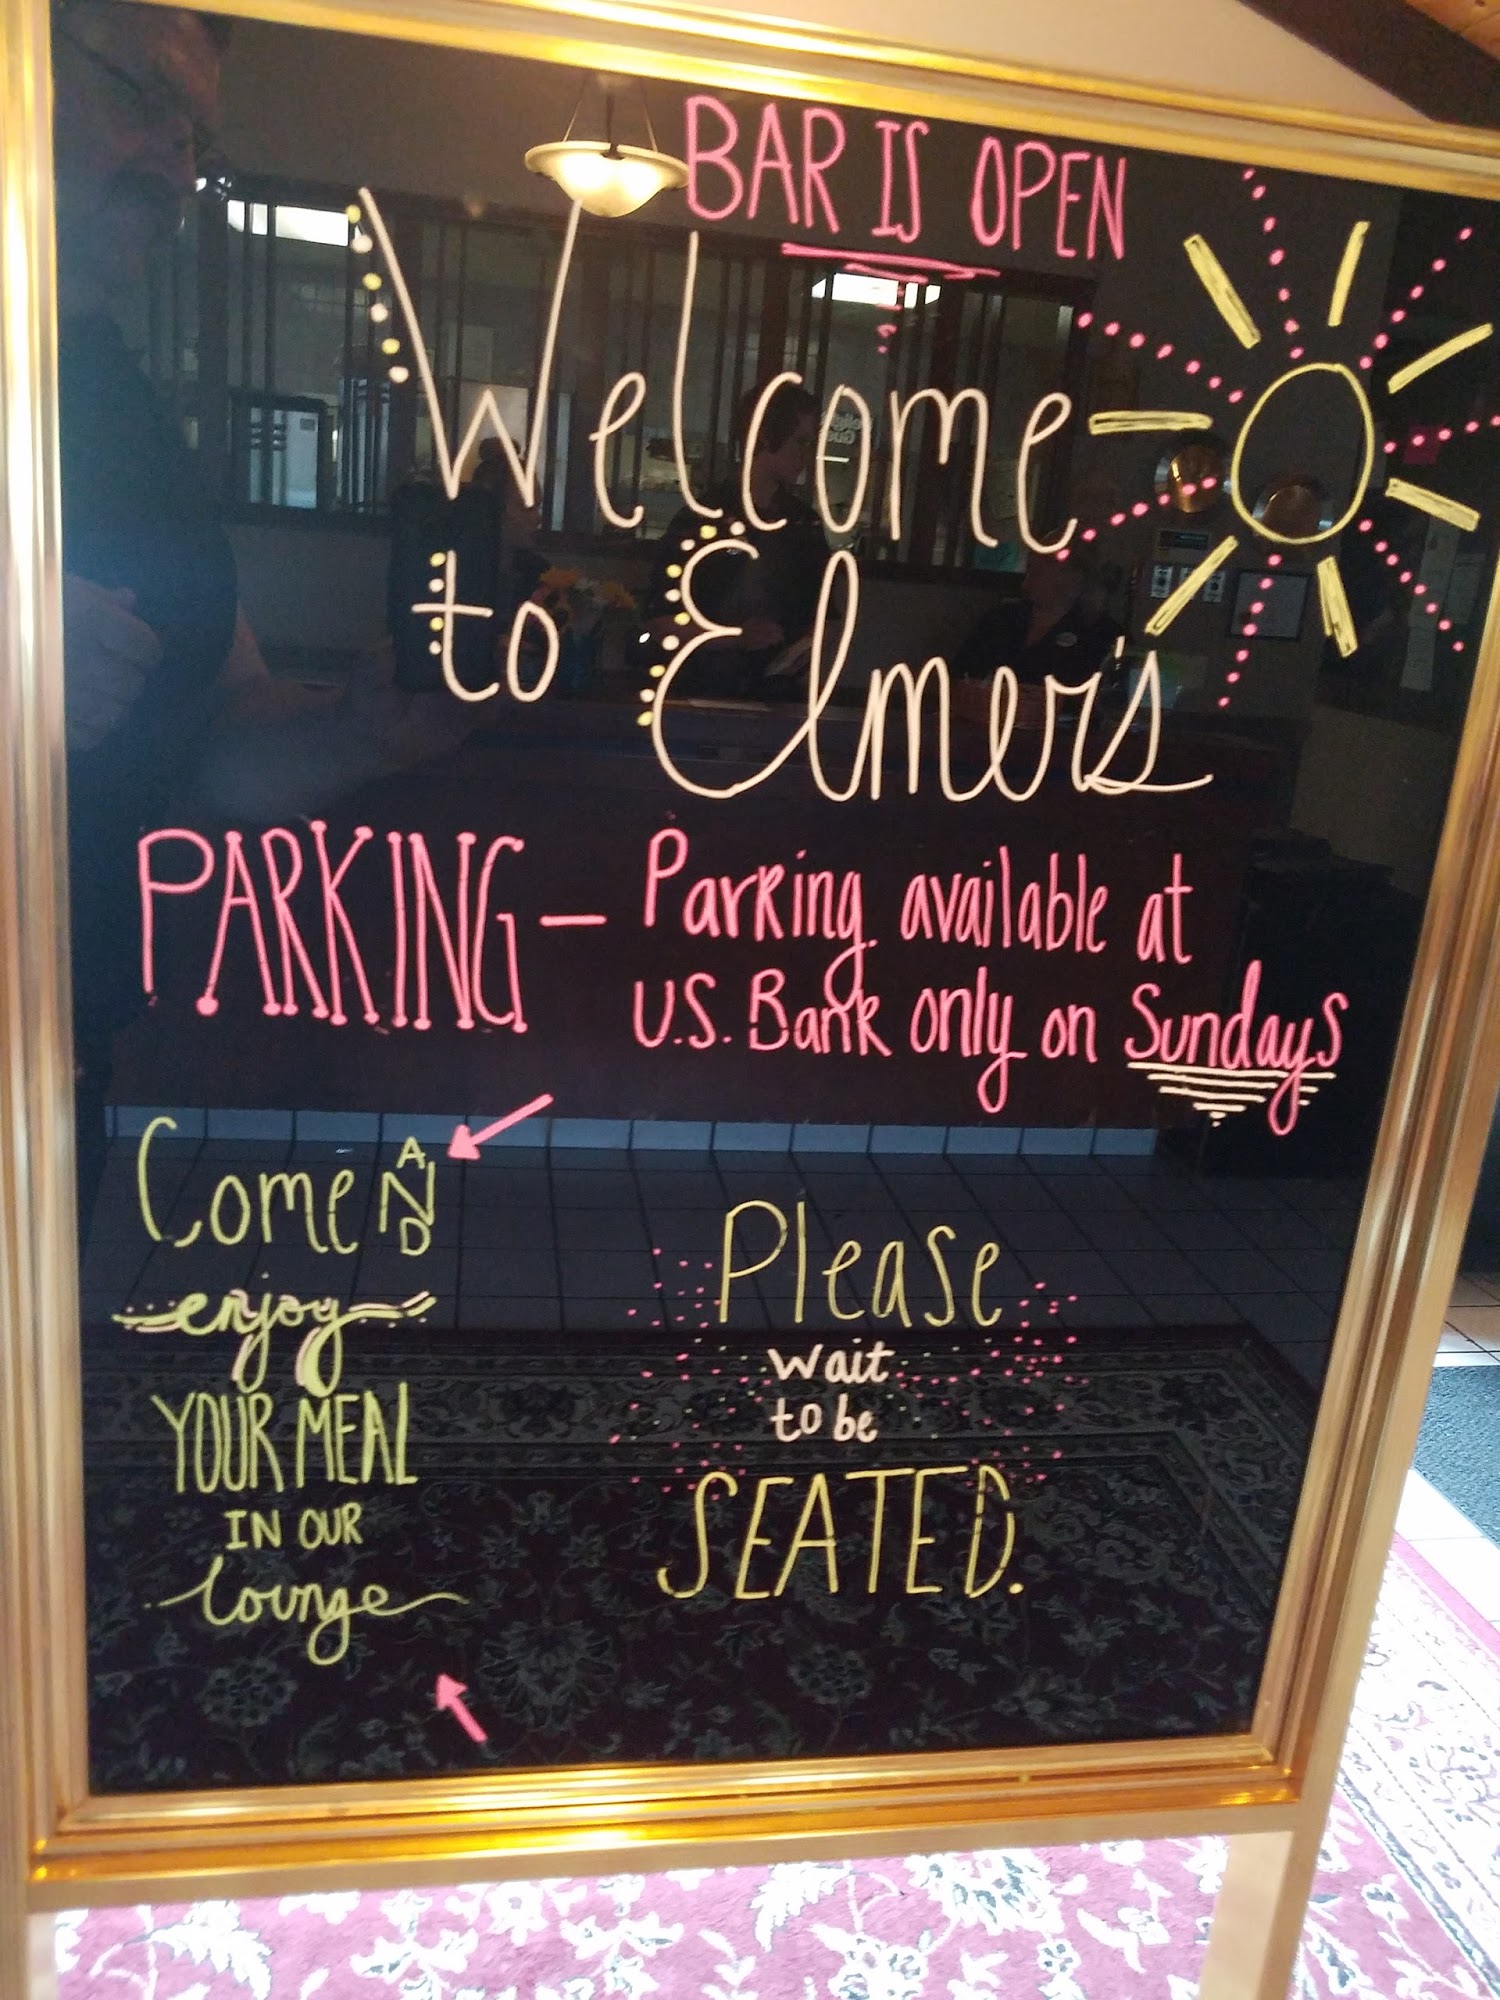 BAR IS OPEN
Welcome
to Elmer's
PARKING – Parking available at
U.S. Bank only on Sundays
Come AND
enjoy
YOUR MEAL
IN OUR
Lounge
Please
wait
to be
SEATED.